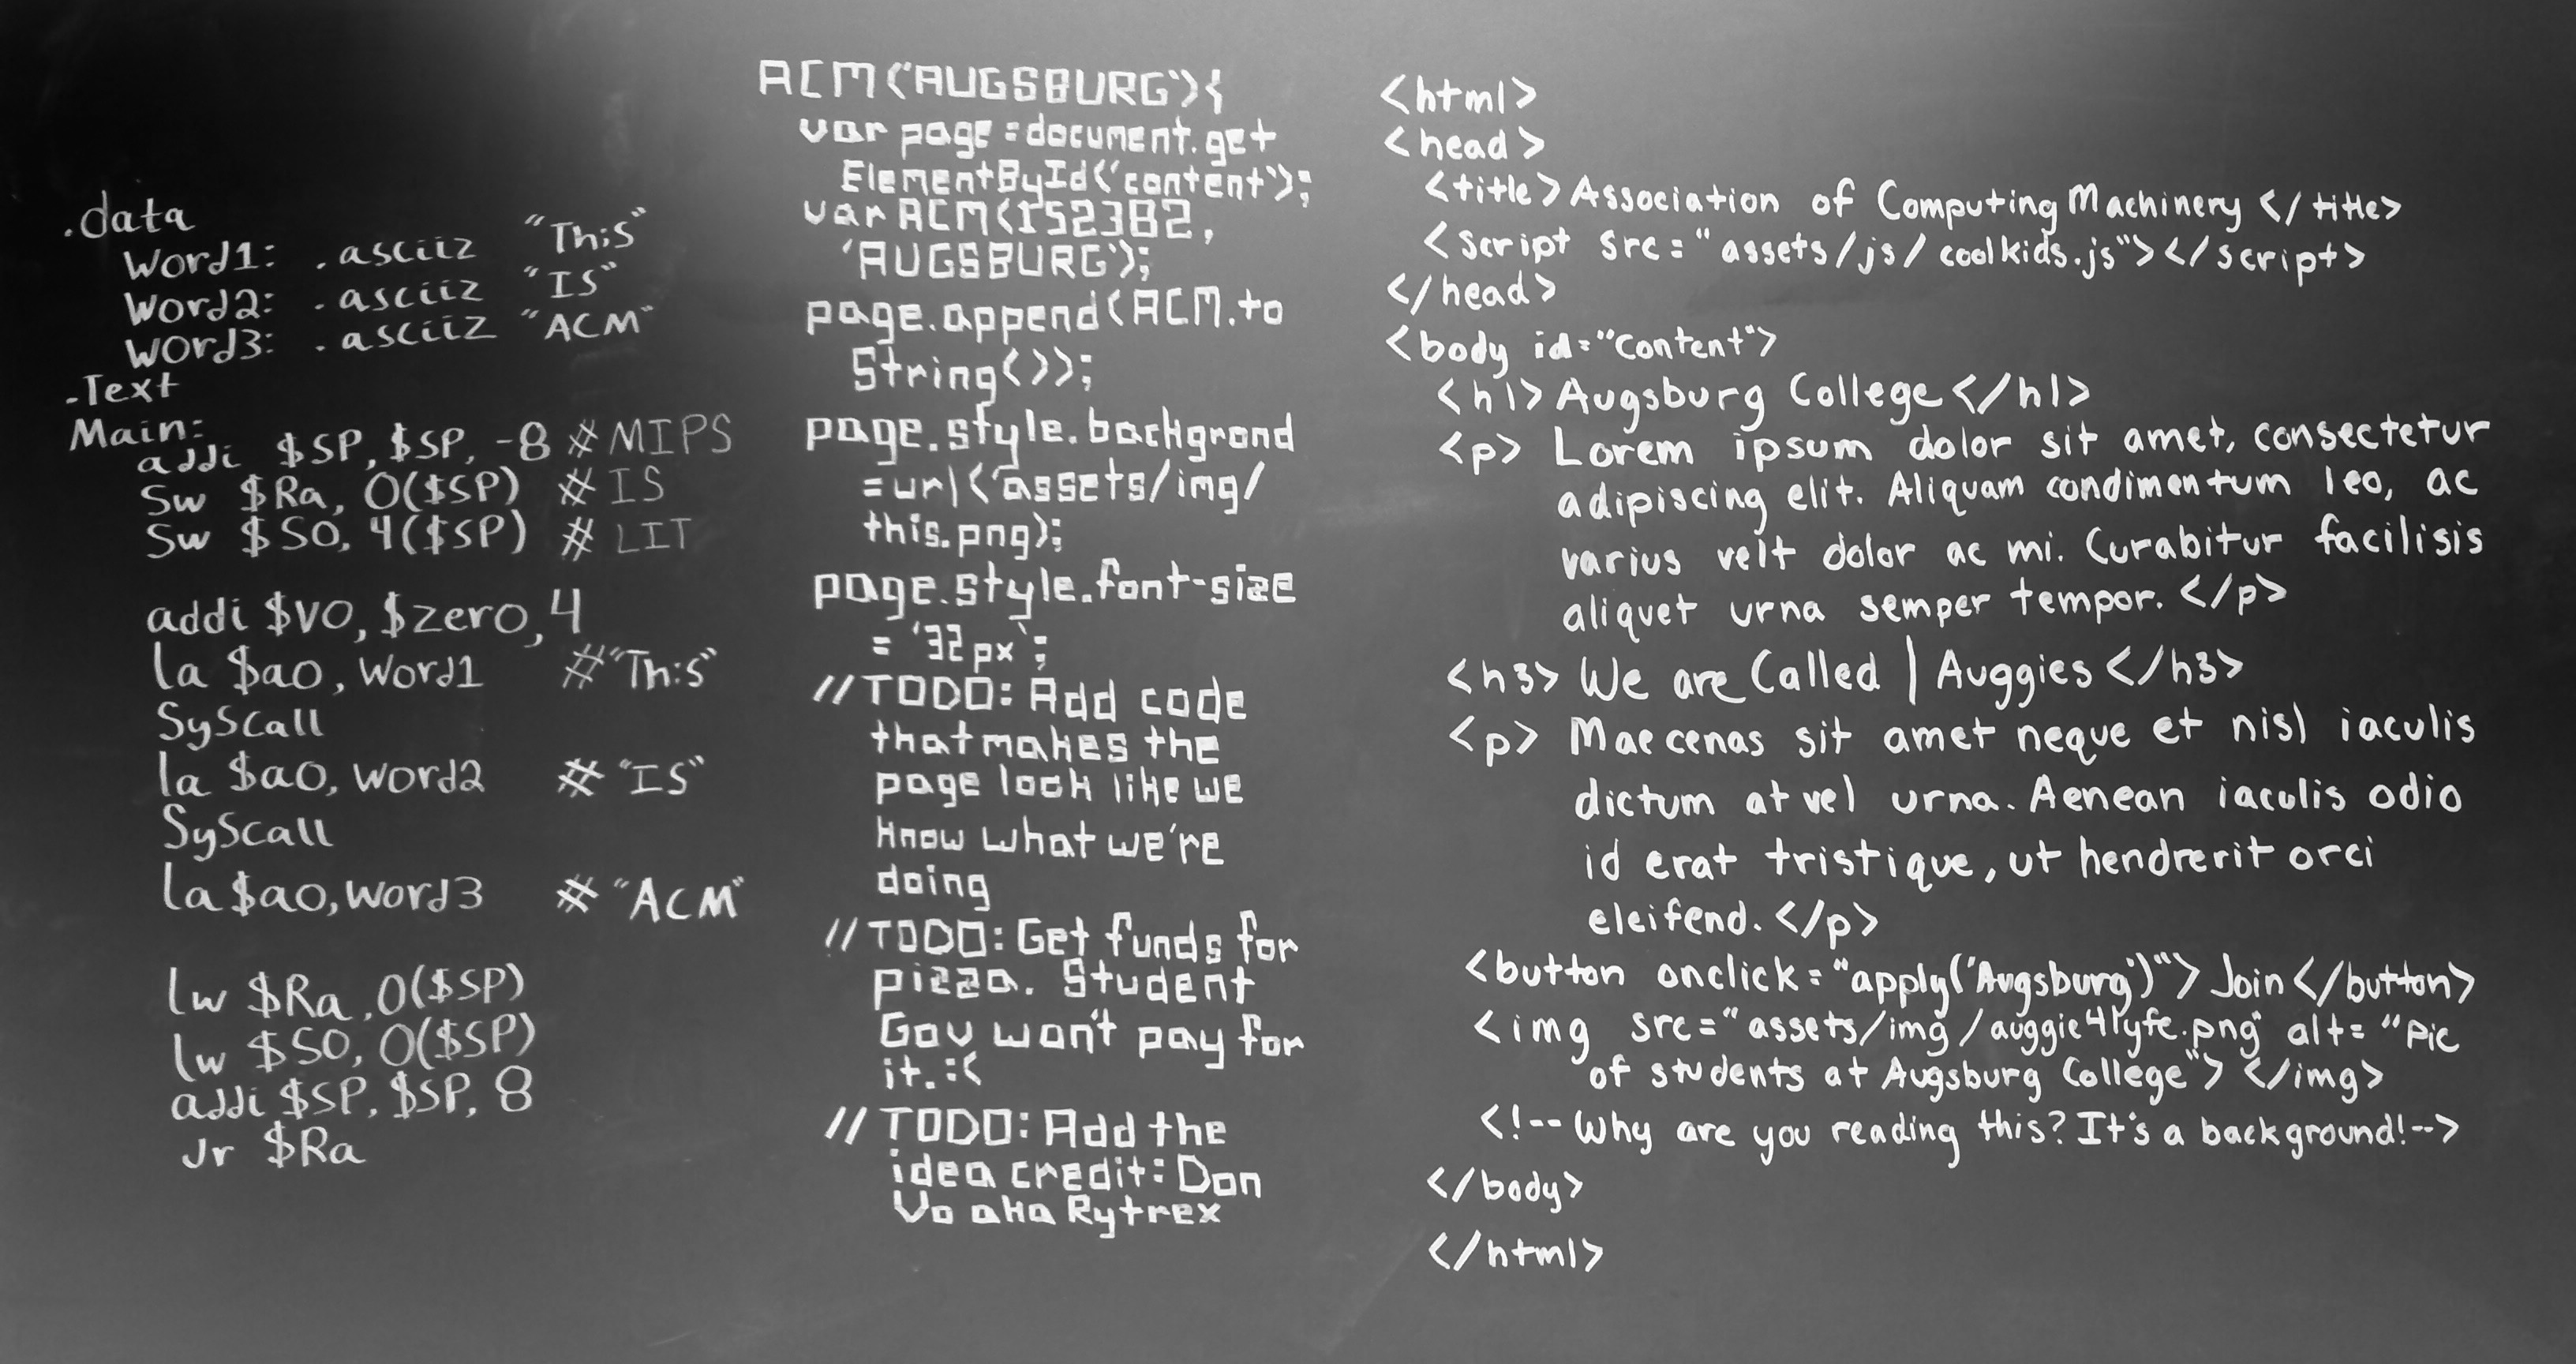 .data
Word1: .asciiz "This"
Word2: .asciiz "IS"
Word3: .asciiz "ACM"
.Text
Main:
addi $SP, $SP, -8 # MIPS
Sw $Ra, 0($SP) # IS
Sw $S0, 4($SP) # LIT
addi $v0, $zero, 4
la $a0, Word1 #"This"
SyScall
la $a0, Word2 # "IS"
SyScall
la $a0, Word3 # "ACM"
lw $Ra, 0($SP)
lw $S0, 0($SP)
addi $SP, $SP, 8
Jr $Ra
ACM('AUGSBURG'){
var page = document.get
ElementById('content');
var ACM(IS2382,
'AUGSBURG');
page.append(ACM.to
String());
page.style.backgrond
=url('assets/img/
this.png);
page.style.font-size
= '32px';
//TODO: Add code
that makes the
page look like we
know what we're
doing
//TODO: Get funds for
pizza. Student
Gov won't pay for
it. :(
// TODO: Add the
idea credit: Don
Vo aka Rytrex
<html>
<head>
<title>Association of Computing Machinery </title>
<script src="assets/js/coolkids.js"></script>
</head>
<body id="content">
<h1>Augsburg College</h1>
<p> Lorem ipsum dolor sit amet, consectetur
adipiscing elit. Aliquam condimentum leo, ac
varius velt dolor ac mi. Curabitur facilisis
aliquet urna semper tempor. </p>
<h3> We are Called | Auggies </h3>
<p> Maecenas sit amet neque et nisl iaculis
dictum at vel urna. Aenean iaculis odio
id erat tristique, ut hendrerit orci
eleifend. </p>
<button onclick="apply('Augsburg')"> Join </button>
<img src="assets/img/auggie4lyfe.png" alt="Pic
of students at Augsburg College"> </img>
<!-- Why are you reading this? It's a background! -->
</body>
</html>